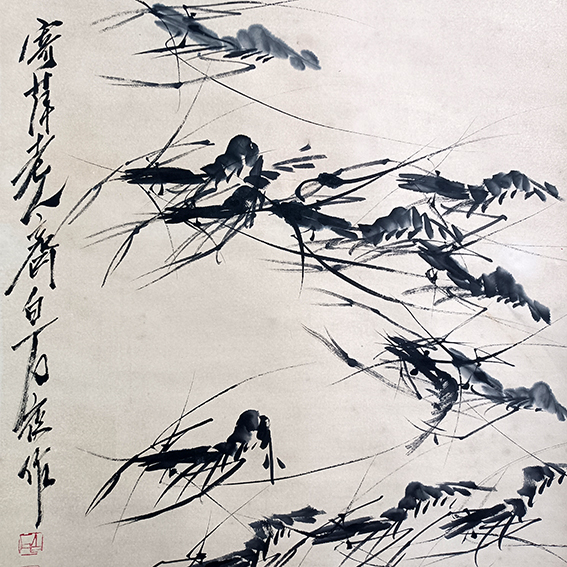 寄萍老人齊白石夜作